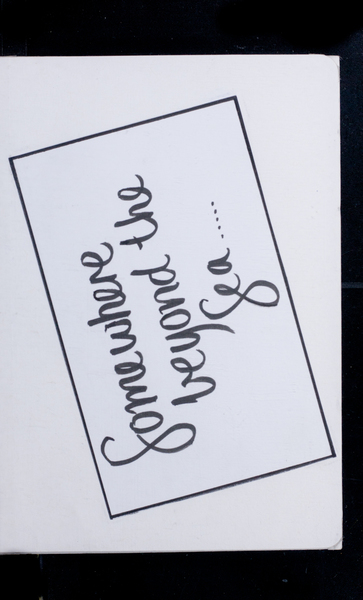 Somewhere
beyond the
Sea ......